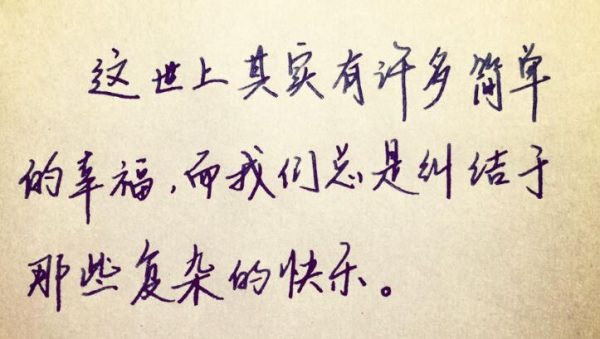 这世上其实有许多简单
的幸福,而我们总是纠结于
那些复杂的快乐。